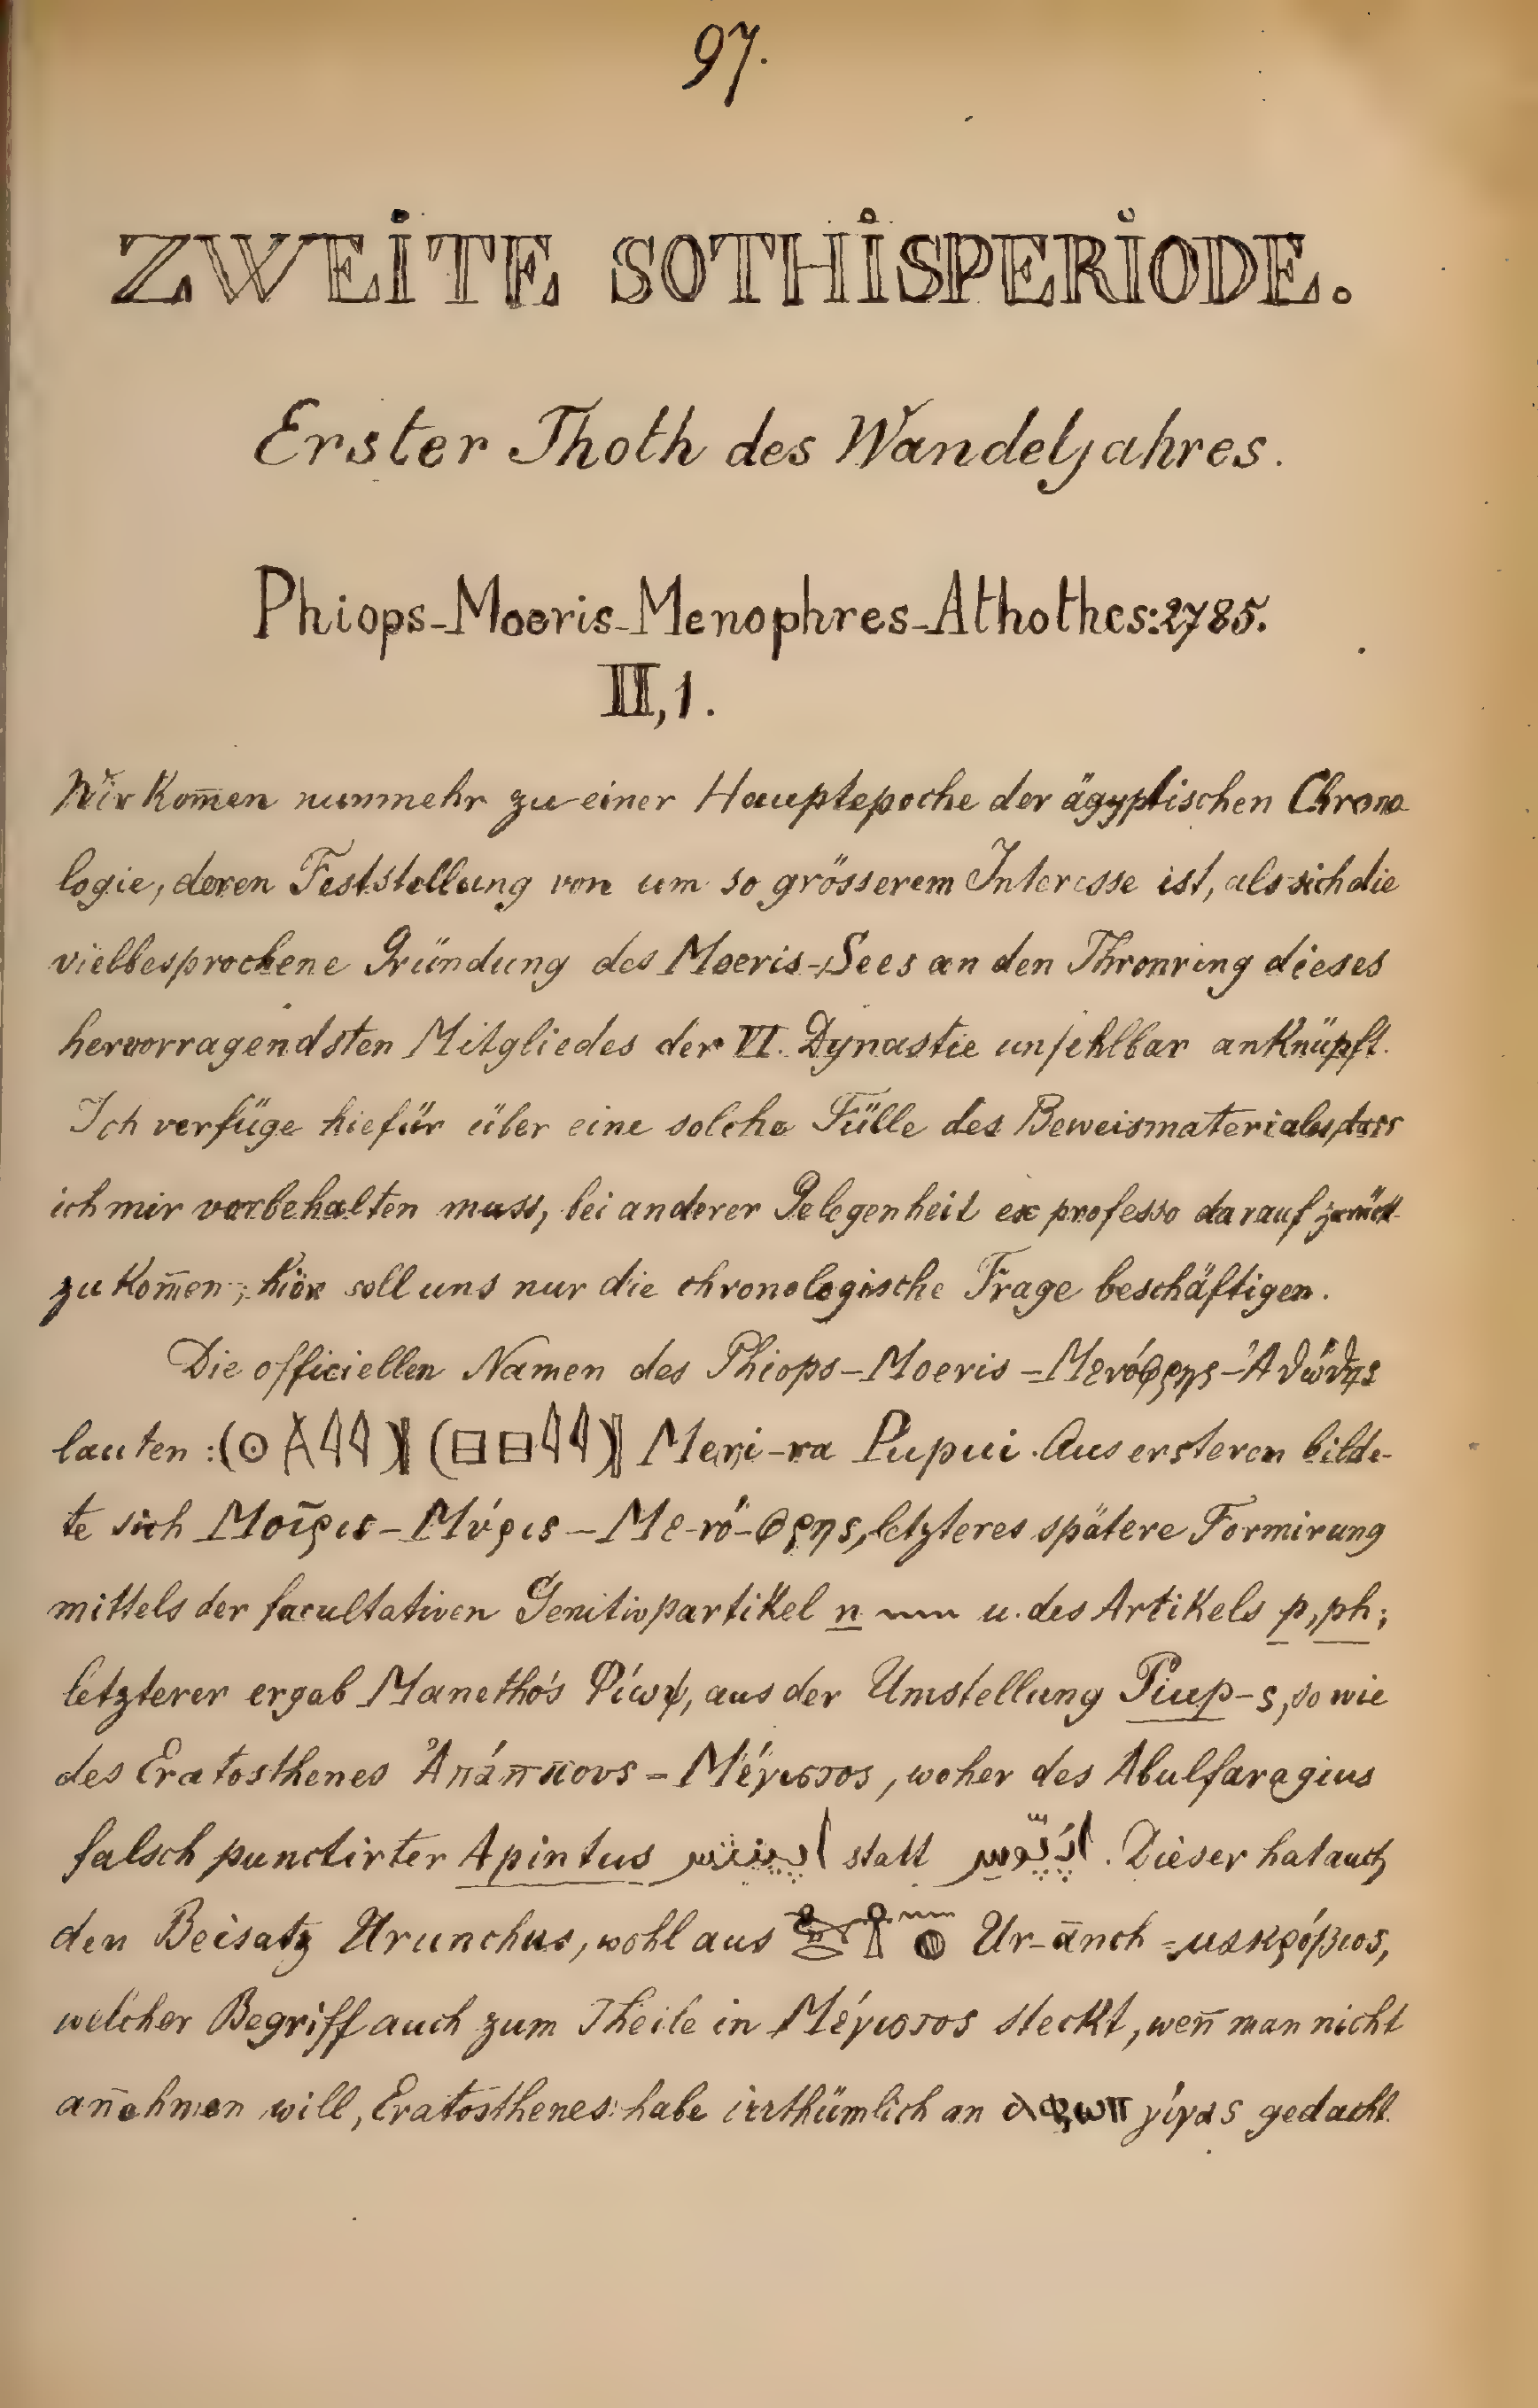 97.
ZWEITE SOTHISPERIODE.
Erster Thoth des Wandeljahres.
Phiops-Moeris-Menophres-Athothes: 2785.
II, 1.
Wir kom̄en nunmehr zu einer Hauptepoche der ägyptischen Chrono
logie, deren Feststellung von um so grösserem Interesse ist, als sich die
vielbesprochene Gründung des Moeris-Sees an den Thronring dieses
hervorragendsten Mitgliedes der VI. Dynastie unfehlbar anknüpft.
Ich verfüge hiefür über eine solche Fülle des Beweismateriales, dass
ich mir vorbehalten muss, bei anderer Gelegenheit ex professo darauf zurück-
zukom̄en; hier soll uns nur die chronologische Frage beschäftigen.
Die officiellen Namen des Phiops-Moeris-Μενόφρης-Ἀθώθης
lauten: Meri-ra Pupui. Aus ersterem bilde-
te sich Μοῖρις-Μύρις-Με-νό-φρης, letzteres spätere Formirung
mittels der facultativen Genitivpartikel n u. des Artikels p, ph;
letzterer ergab Manethó's Φίωψ, aus der Umstellung Piup-s, so wie
des Eratosthenes Ἀπάππους-Μέγιστος, woher des Abulfaragius
falsch punctirter Apintus statt . Dieser hat auch
den Beisatz Urunchus, wohl aus Ur-ānch = μακρόβιος,
welcher Begriff auch zum Theile in Μέγιστος steckt, wen̄ man nicht
an̄ehmen will, Eratosthenes habe irrthümlich an γίγας gedacht.